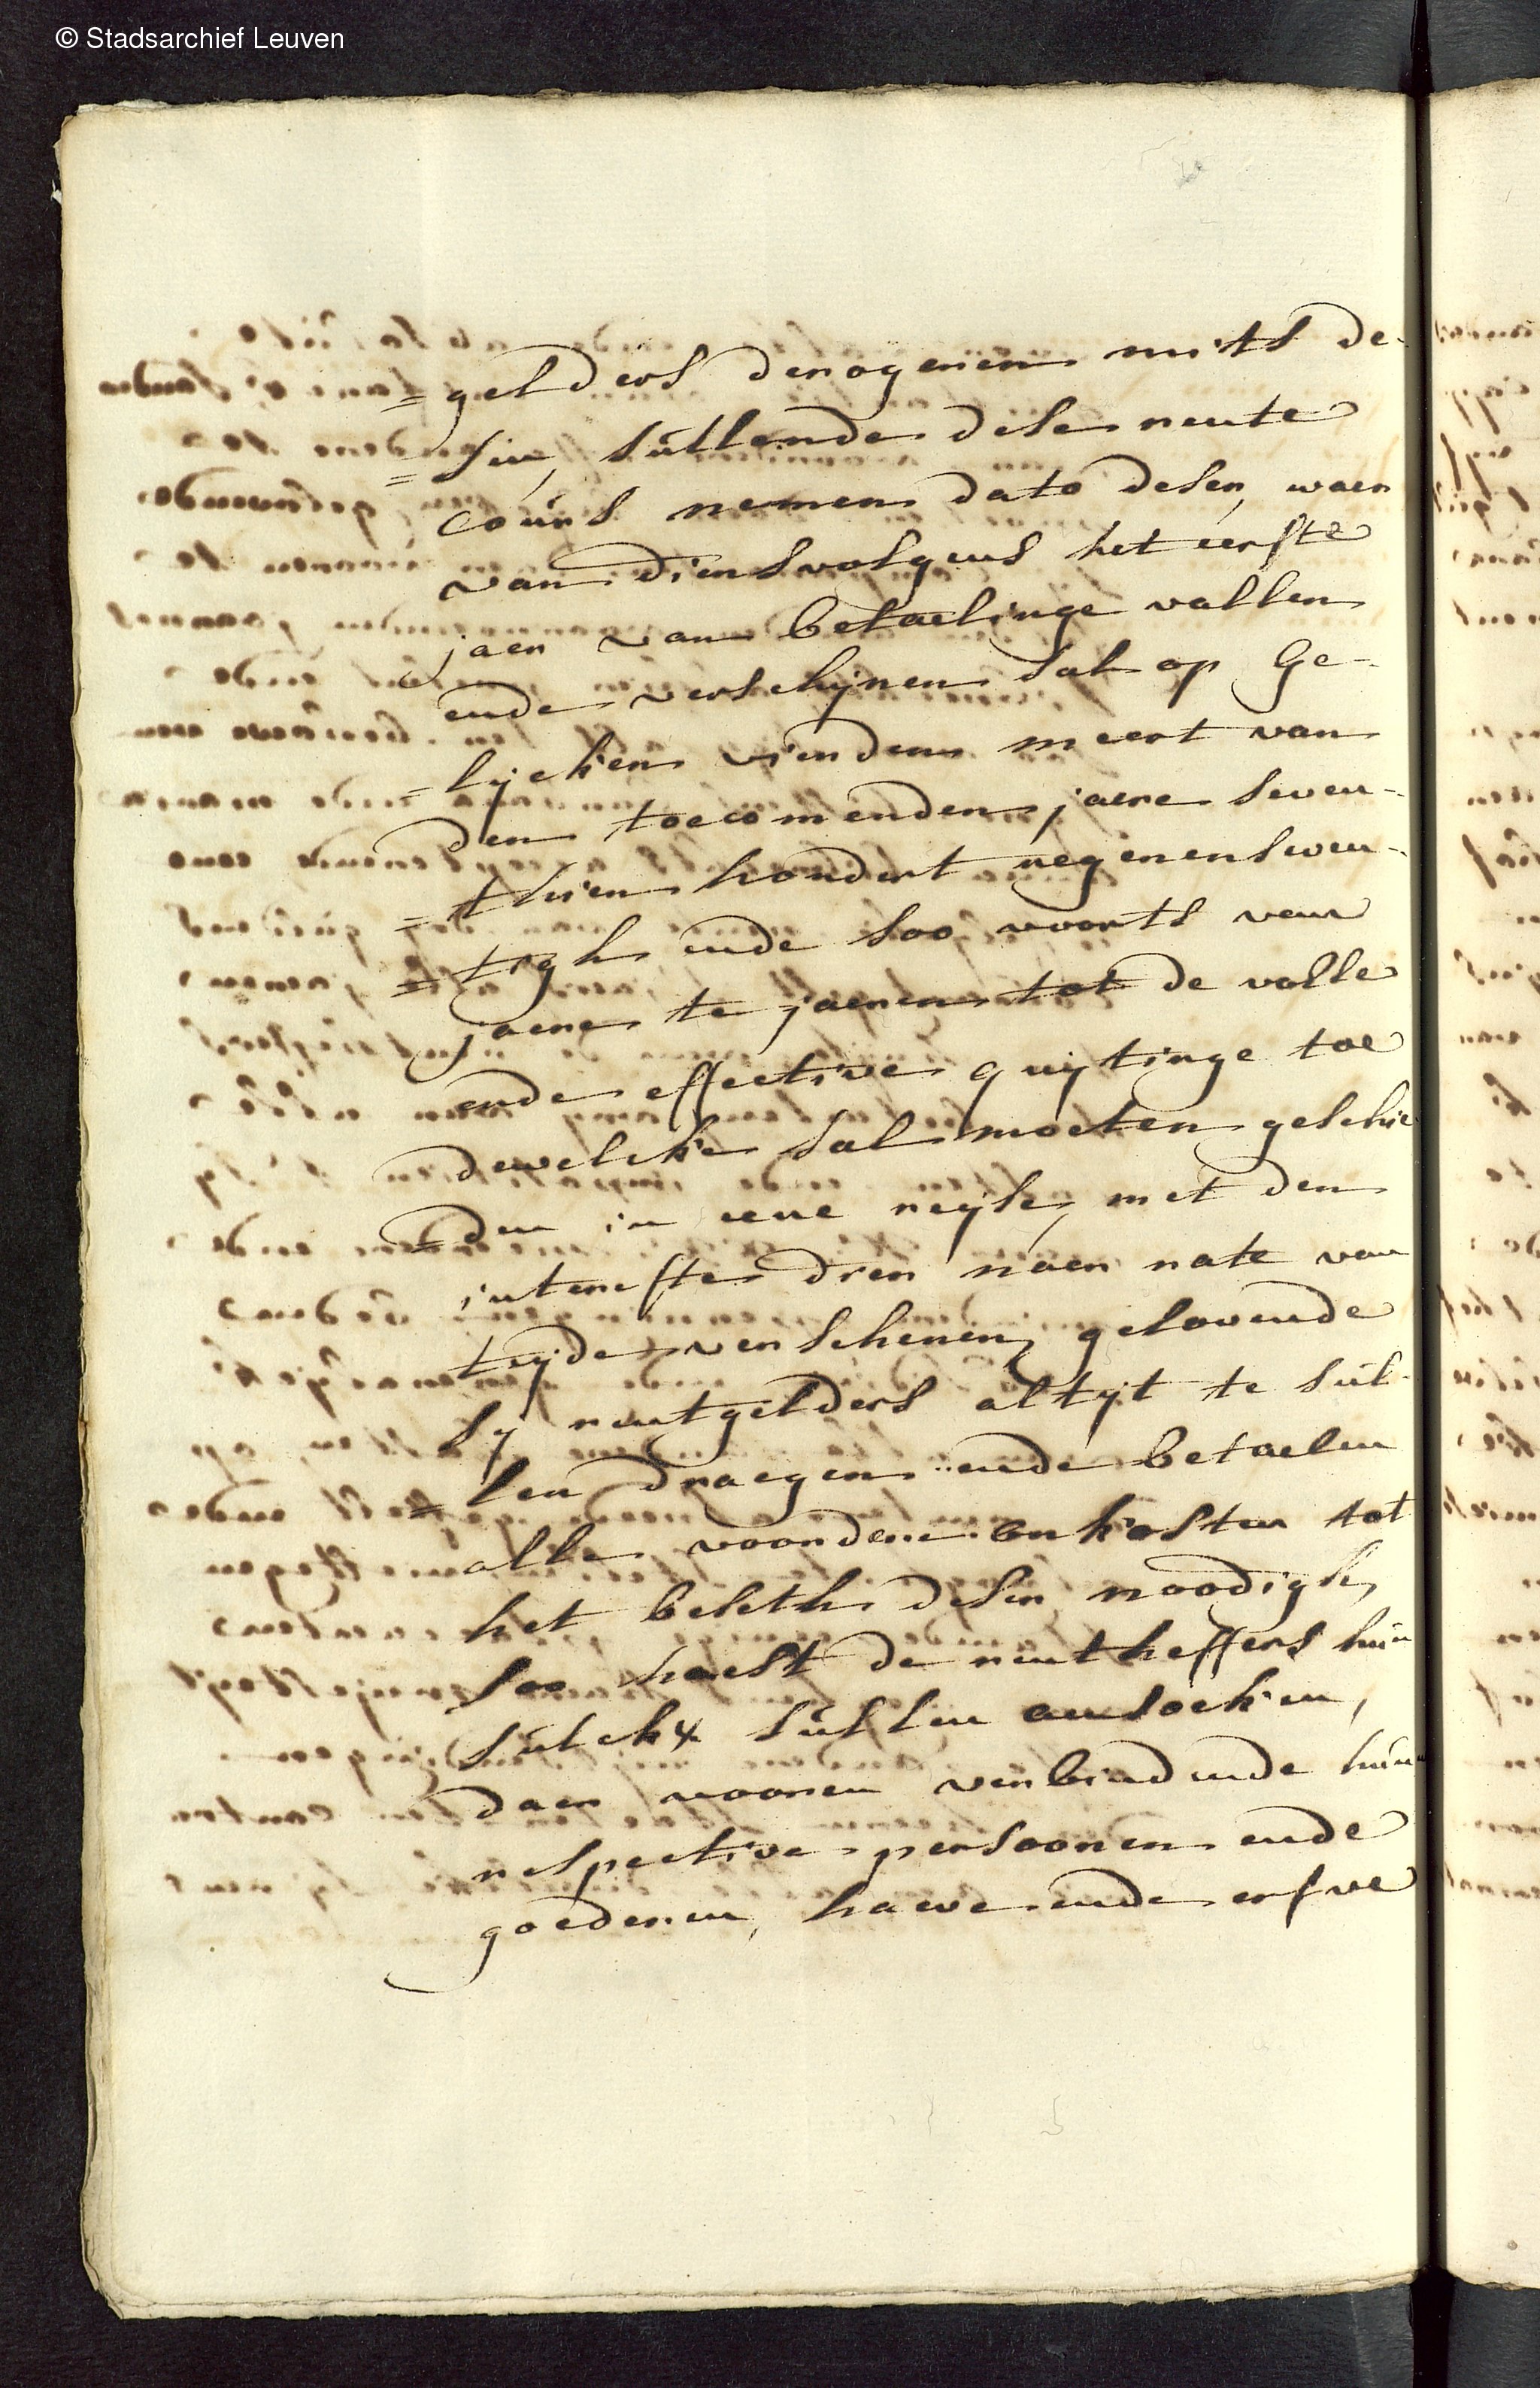 © Stadsarchief Leuven
=gelders derogeren mits de-
=sen, sullende dese rente
cours nemen dato deser, waer
van diensvolgens het eerste
jaer van betaelinge vallen
ende verschijnen sal op ge-
=lycken vierden meert van
den toecomenden jaere seven-
=thien hondert negenenseven-
=tigh ende soo voorts van
jaere te jaeren tot de volle
ende effective quytinge toe
dewelcke sal moeten geschie
=den in eene reyse, met den
intereste dien naer rate van
tyde verschenen, gelovende
sy rentgelders altyt te sul-
=len draegen ende betaelen
alle voordere onkosten tot
het beleth deser noodigh,
soo haest de rentheffers hun
sulckx sullen aensoeken,
daer vooren verbindende hun
respective persoonen ende
goederen, haeve ende erfve